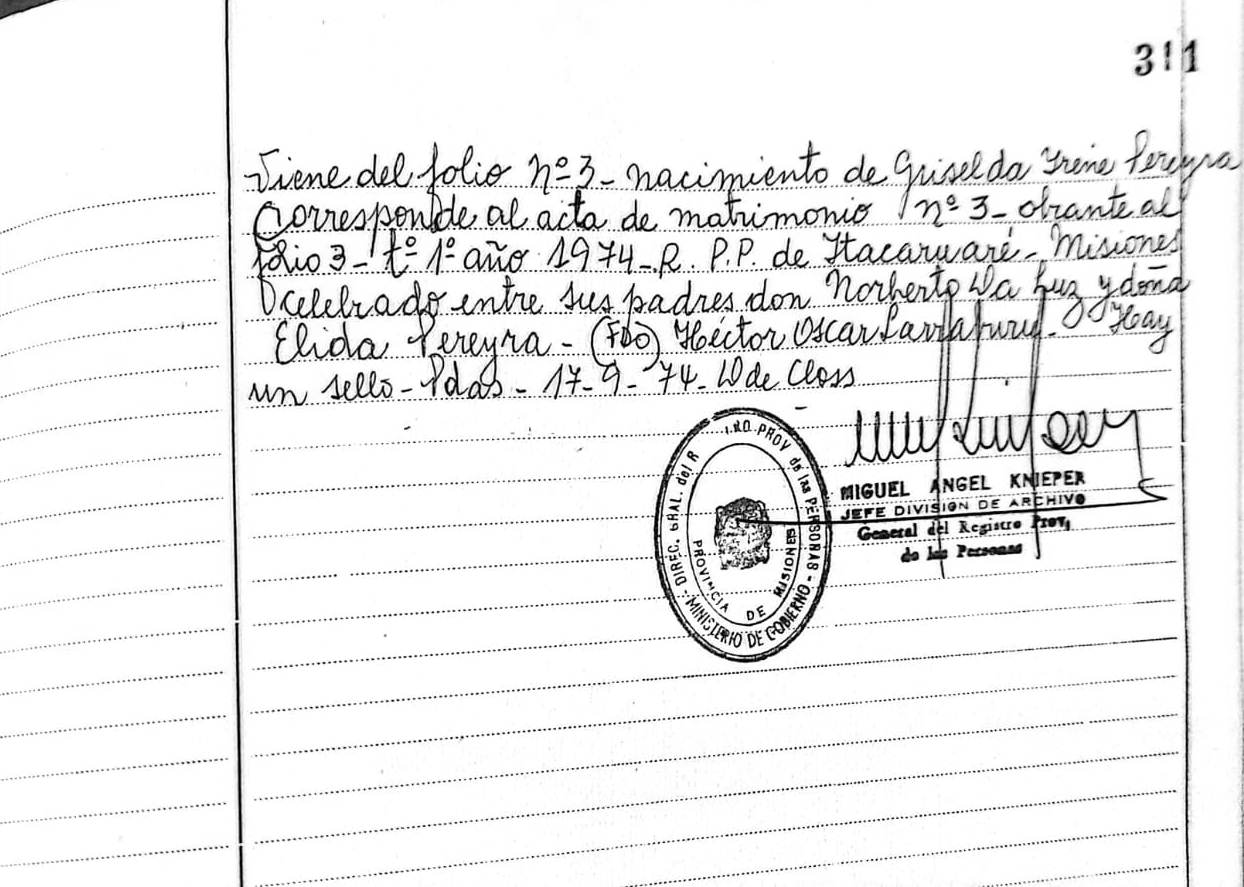 311
Viene del folio nº 3 - nacimiento de Griselda Irene Pereyra
Corresponde al acta de matrimonio nº 3 - obrante al
folio 3 - tº 1º año 1974 - R. P.P. de Itacaruaré - Misiones
celebrado entre sus padres don Norberto Da Luz y doña
Elida Pereyra - (FDO) Héctor Oscar Larraburu - Hay
un sello - Pdas - 17 - 9 - 74 - W de Closs
DIREC. GRAL. del R PROV de las PERSONAS - MINISTERIO DE GOBIERNO -
PROVINCIA DE MISIONES
MIGUEL ANGEL KNIEPER
JEFE DIVISION DE ARCHIVO
General del Registro Prov,
de las Personas